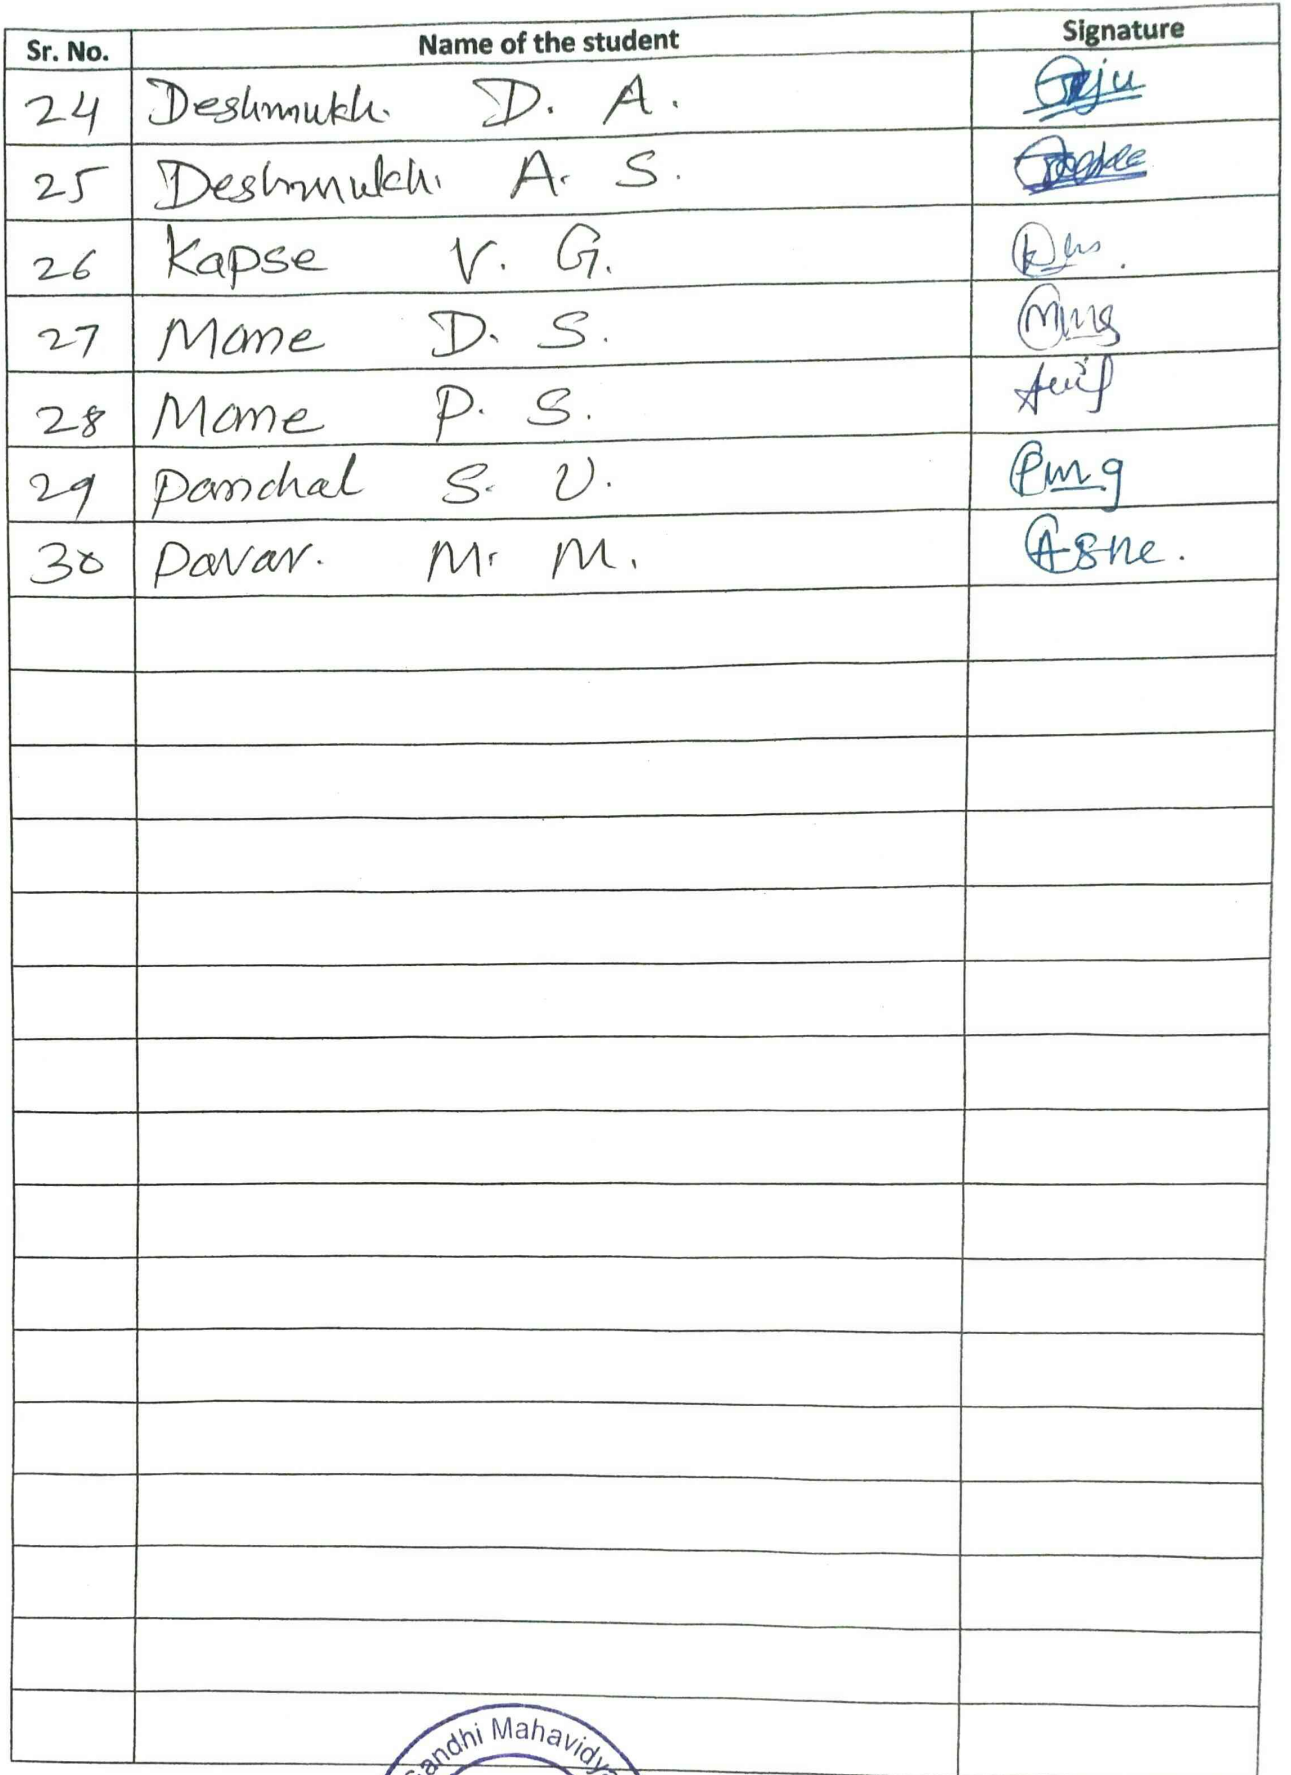 Sr. No. Name of the student Signature
24 Deshmukh. D. A.
25 Deshmukh. A. S.
26 Kapse V. G.
27 Mane D. S.
28 Mane P. S.
29 Panchal S. V.
30 Pavar. M. M.
andhi Mahavidy